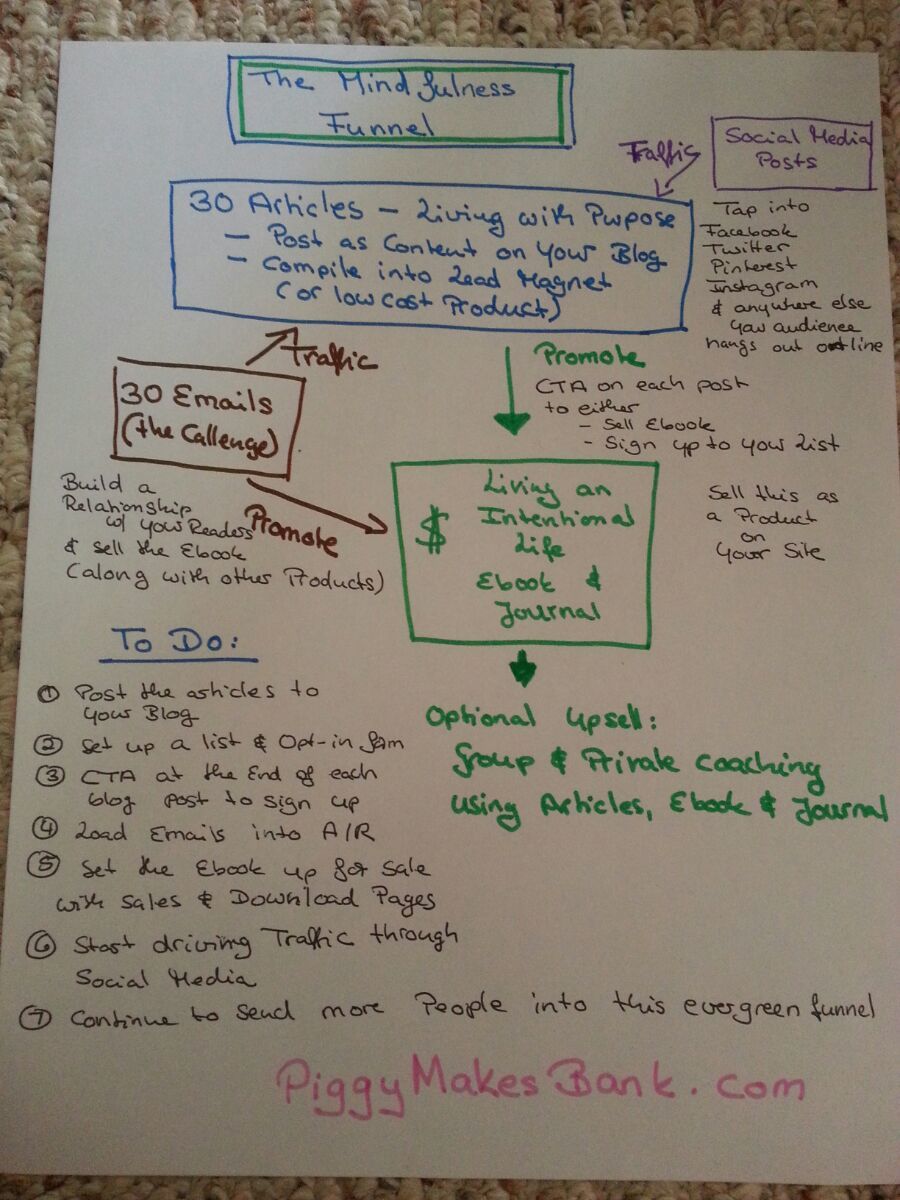 The Mindfulness
Funnel
Traffic
Social Media
Posts
30 Articles - Living with Purpose
- Post as Content on Your Blog
- Compile into Lead Magnet
(or low cost Product)
Tap into
Facebook
Twitter
Pinterest
Instagram
& anywhere else
your audience
hangs out online
Traffic
30 Emails
(the Callenge)
Promote
CTA on each post
to either
- Sell Ebook
- Sign up to your List
Build a
Relationship
w/ your Readers
& sell the Ebook
(along with other Products)
Promote
$
Living an
Intentional
Life
Ebook &
Journal
Sell this as
a Product
on
Your Site
To Do:
① Post the articles to
your Blog
② Set up a list & Opt-in form
③ CTA at the End of each
blog post to sign up
④ Load Emails into A/R
⑤ Set the Ebook up for sale
with sales & Download Pages
⑥ Start driving Traffic through
Social Media
⑦ Continue to send more People into this evergreen funnel
Optional Upsell:
Group & Private coaching
using Articles, Ebook & Journal
PiggyMakesBank.com